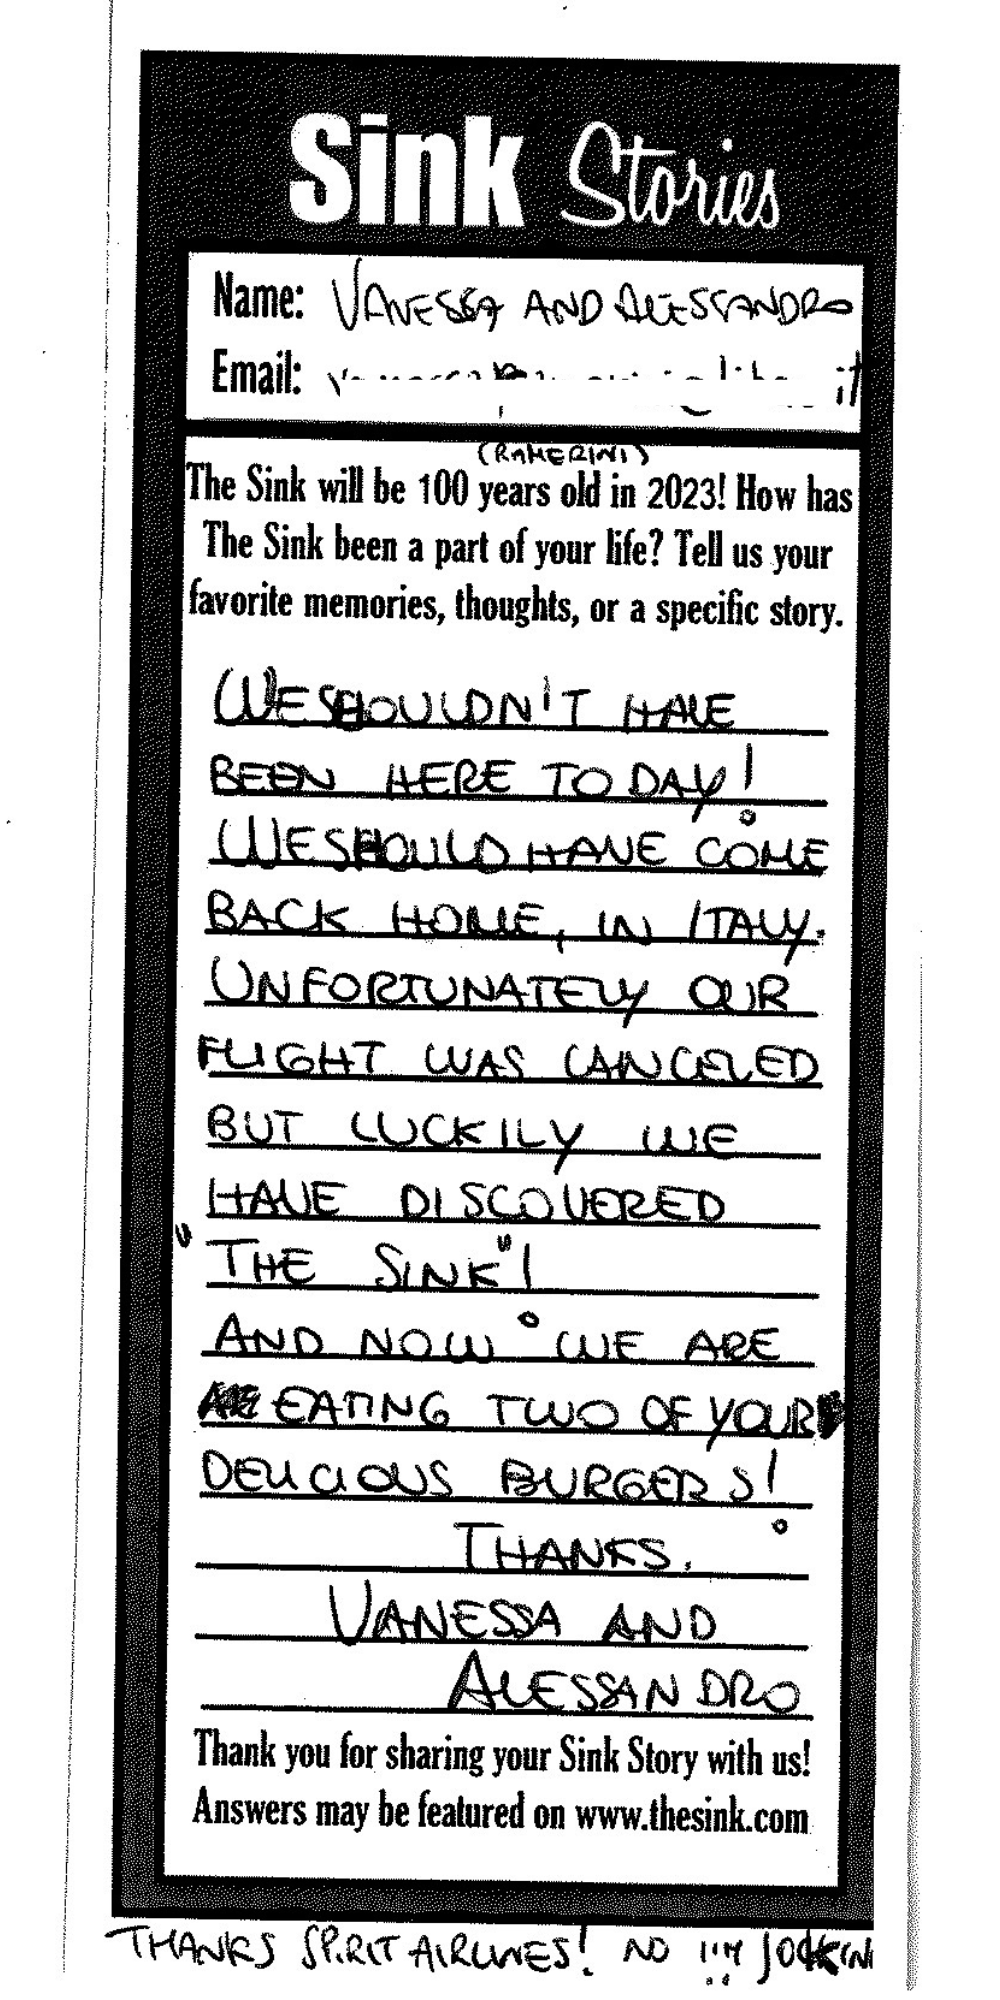 Sink Stories
Name: VANESSA AND ALESSANDRO
Email:
(RAMERINI)
The Sink will be 100 years old in 2023! How has
The Sink been a part of your life? Tell us your
favorite memories, thoughts, or a specific story.
WE SHOULDN'T HAVE
BEEN HERE TODAY!
WE SHOULD HAVE COME
BACK HOME, IN ITALY.
UNFORTUNATELY OUR
FLIGHT WAS CANCELED
BUT LUCKILY WE
HAVE DISCOVERED
"THE SINK"!
AND NOW WE ARE
EATING TWO OF YOUR
DELICIOUS BURGERS!
THANKS.
VANESSA AND
ALESSANDRO
Thank you for sharing your Sink Story with us!
Answers may be featured on www.thesink.com
THANKS SPIRIT AIRLINES! NO I'M JOCKIN